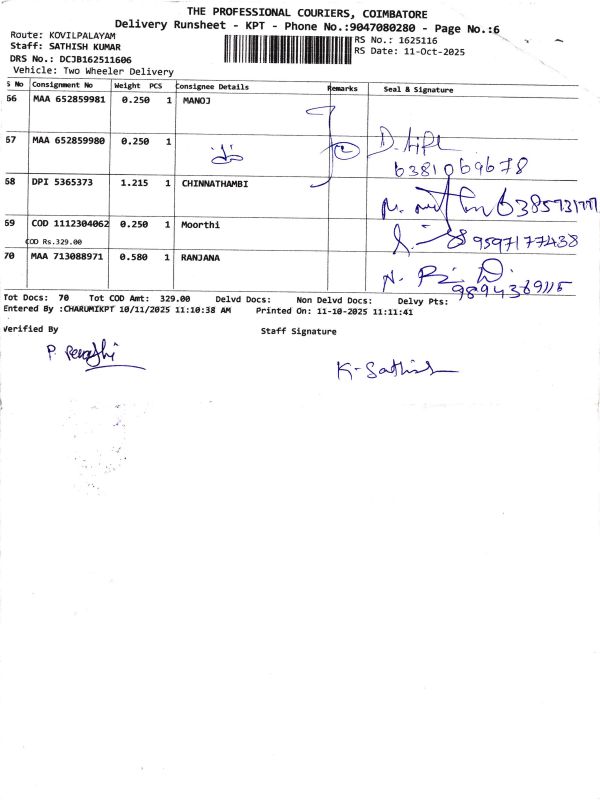 THE PROFESSIONAL COURIERS, COIMBATORE
Delivery Runsheet - KPT - Phone No.:9047080280 - Page No.:6
Route: KOVILPALAYAM
RS No.: 1625116
Staff: SATHISH KUMAR
RS Date: 11-Oct-2025
DRS No.: DCJB162511606
Vehicle: Two Wheeler Delivery
S No Consignment No Weight PCS Consignee Details Remarks Seal & Signature
66 MAA 652859981 0.250 1 MANOJ
67 MAA 652859980 0.250 1
6381069678
68 DPI 5365373 1.215 1 CHINNATHAMBI
69 COD 1112304062 0.250 1 Moorthi 9597177438
COD Rs.329.00
70 MAA 713088971 0.580 1 RANJANA
9894369115
Tot Docs: 70 Tot COD Amt: 329.00 Delvd Docs: Non Delvd Docs: Delvy Pts:
Entered By :CHARUMIKPT 10/11/2025 11:10:38 AM Printed On: 11-10-2025 11:11:41
Verified By Staff Signature
K-Sathish